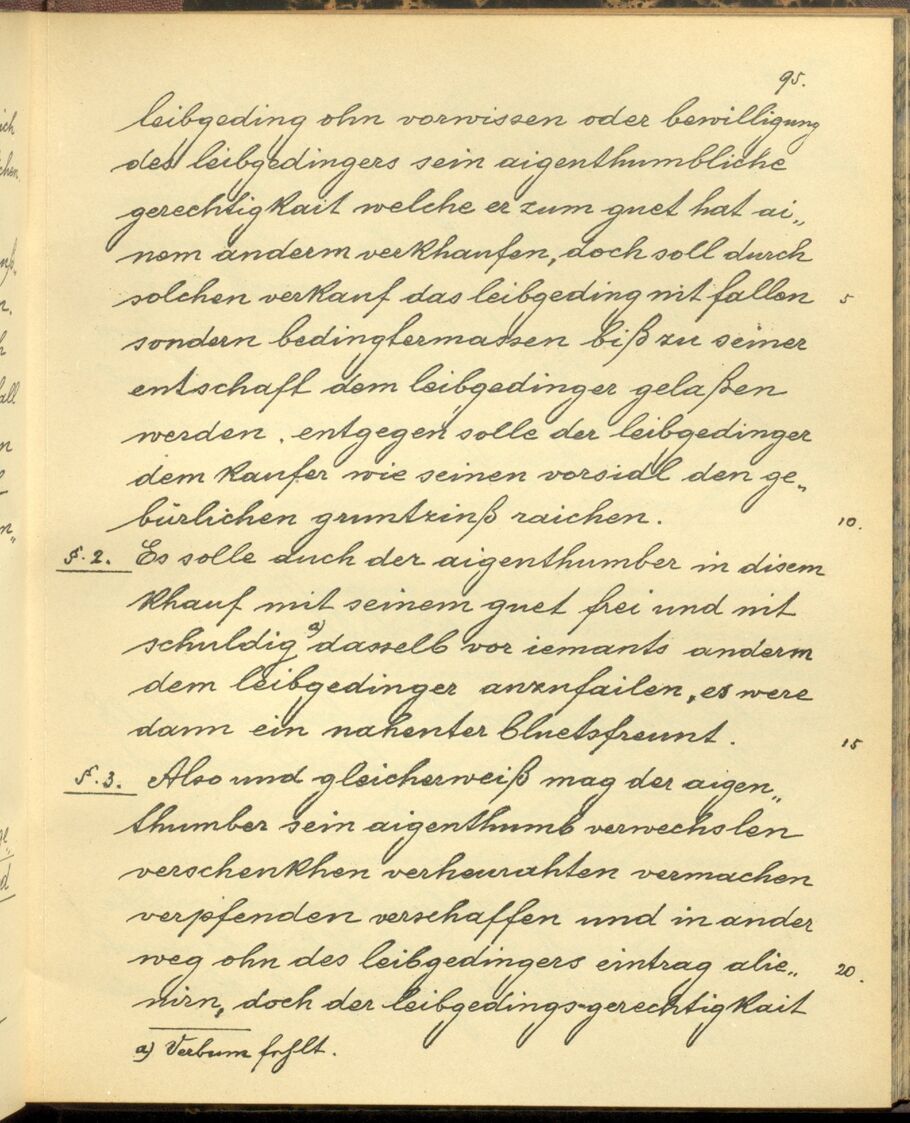 95.
leibgeding ohn vorwissen oder bewilligung
des leibgedingers sein aigenthumbliche
gerechtigkait welche er zum guet hat ai„
nem anderm verkhaufen, doch soll durch
solchen verkauf das leibgeding nit fallen 5
sondern bedingtermassen biß zu seiner
entschaft dem leibgedinger gelaßen
werden. entgegen solle der leibgedinger
dem kaufer wie seinen vorsidl den ge„
bürlichen gruntzinß raichen. 10.
§. 2. Es solle auch der aigenthumber in disem
khauf mit seinem guet frei und nit
schuldig a) dasselb vor iemants anderm
dem leibgedinger anzufailen, es were
dann ein nahenter bluetsfreunt. 15
§. 3. Also und gleicherweiß mag der aigen„
thumber sein aigenthumb verwechslen
verschenkhen verheurahten vermachen
verpfenden verschaffen und in ander
weg ohn des leibgedingers eintrag alie„ 20.
nirn, doch der leibgedings-gerechtigkait
a) Verbum fehlt.